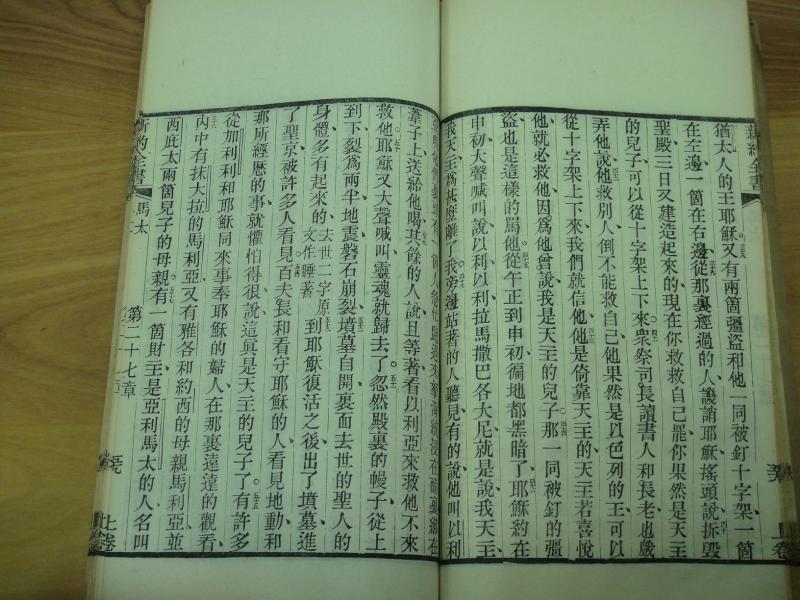 猶太人的王耶穌又有兩箇彊盜和他一同被釘十字架一箇
在左邊一箇在右邊從那裏經過的人譏誚耶穌搖頭說拆毀
聖殿三日又建造起來的現在你救救自己罷你果然是天主
的兒子可以從十字架上下來衆祭司長讀書人和長老也戲
弄他說他救別人倒不能救自己他果然是以色列的王可以
從十字架上下來我們就信他他是倚靠天主的天主若喜悅
他就必救他因爲他曾說我是天主的兒子那一同被釘的彊
盜也是這樣的罵他從午正到申初徧地都黑暗了耶穌約在
申初大聲喊叫說以利以利拉馬撒巴各大尼就是說我天主
我天主爲甚麼離了我旁邊站著的人聽見有的說他叫以利
葦子上送給他喝其餘的人說且等著看以利亞來救他不來
救他耶穌又大聲喊叫靈魂就歸去了忽然殿裏的幔子從上
到下裂爲兩半地震磐石崩裂墳墓自開裏面去世的聖人的
身體多有起來的去世二字原文作睡著到耶穌復活之後出了墳墓進
了聖京被許多人看見百夫長和看守耶穌的人看見地動和
那所經歷的事就懼怕得很說這眞是天主的兒子了有許多
從加利利和耶穌同來事奉耶穌的婦人在那裏遠遠的觀看
內中有抹大拉的馬利亞又有雅各和約西的母親馬利亞並
西庇太兩箇兒子的母親有一箇財主是亞利馬太的人名叫
新約全書
馬太
第二十七章
上卷